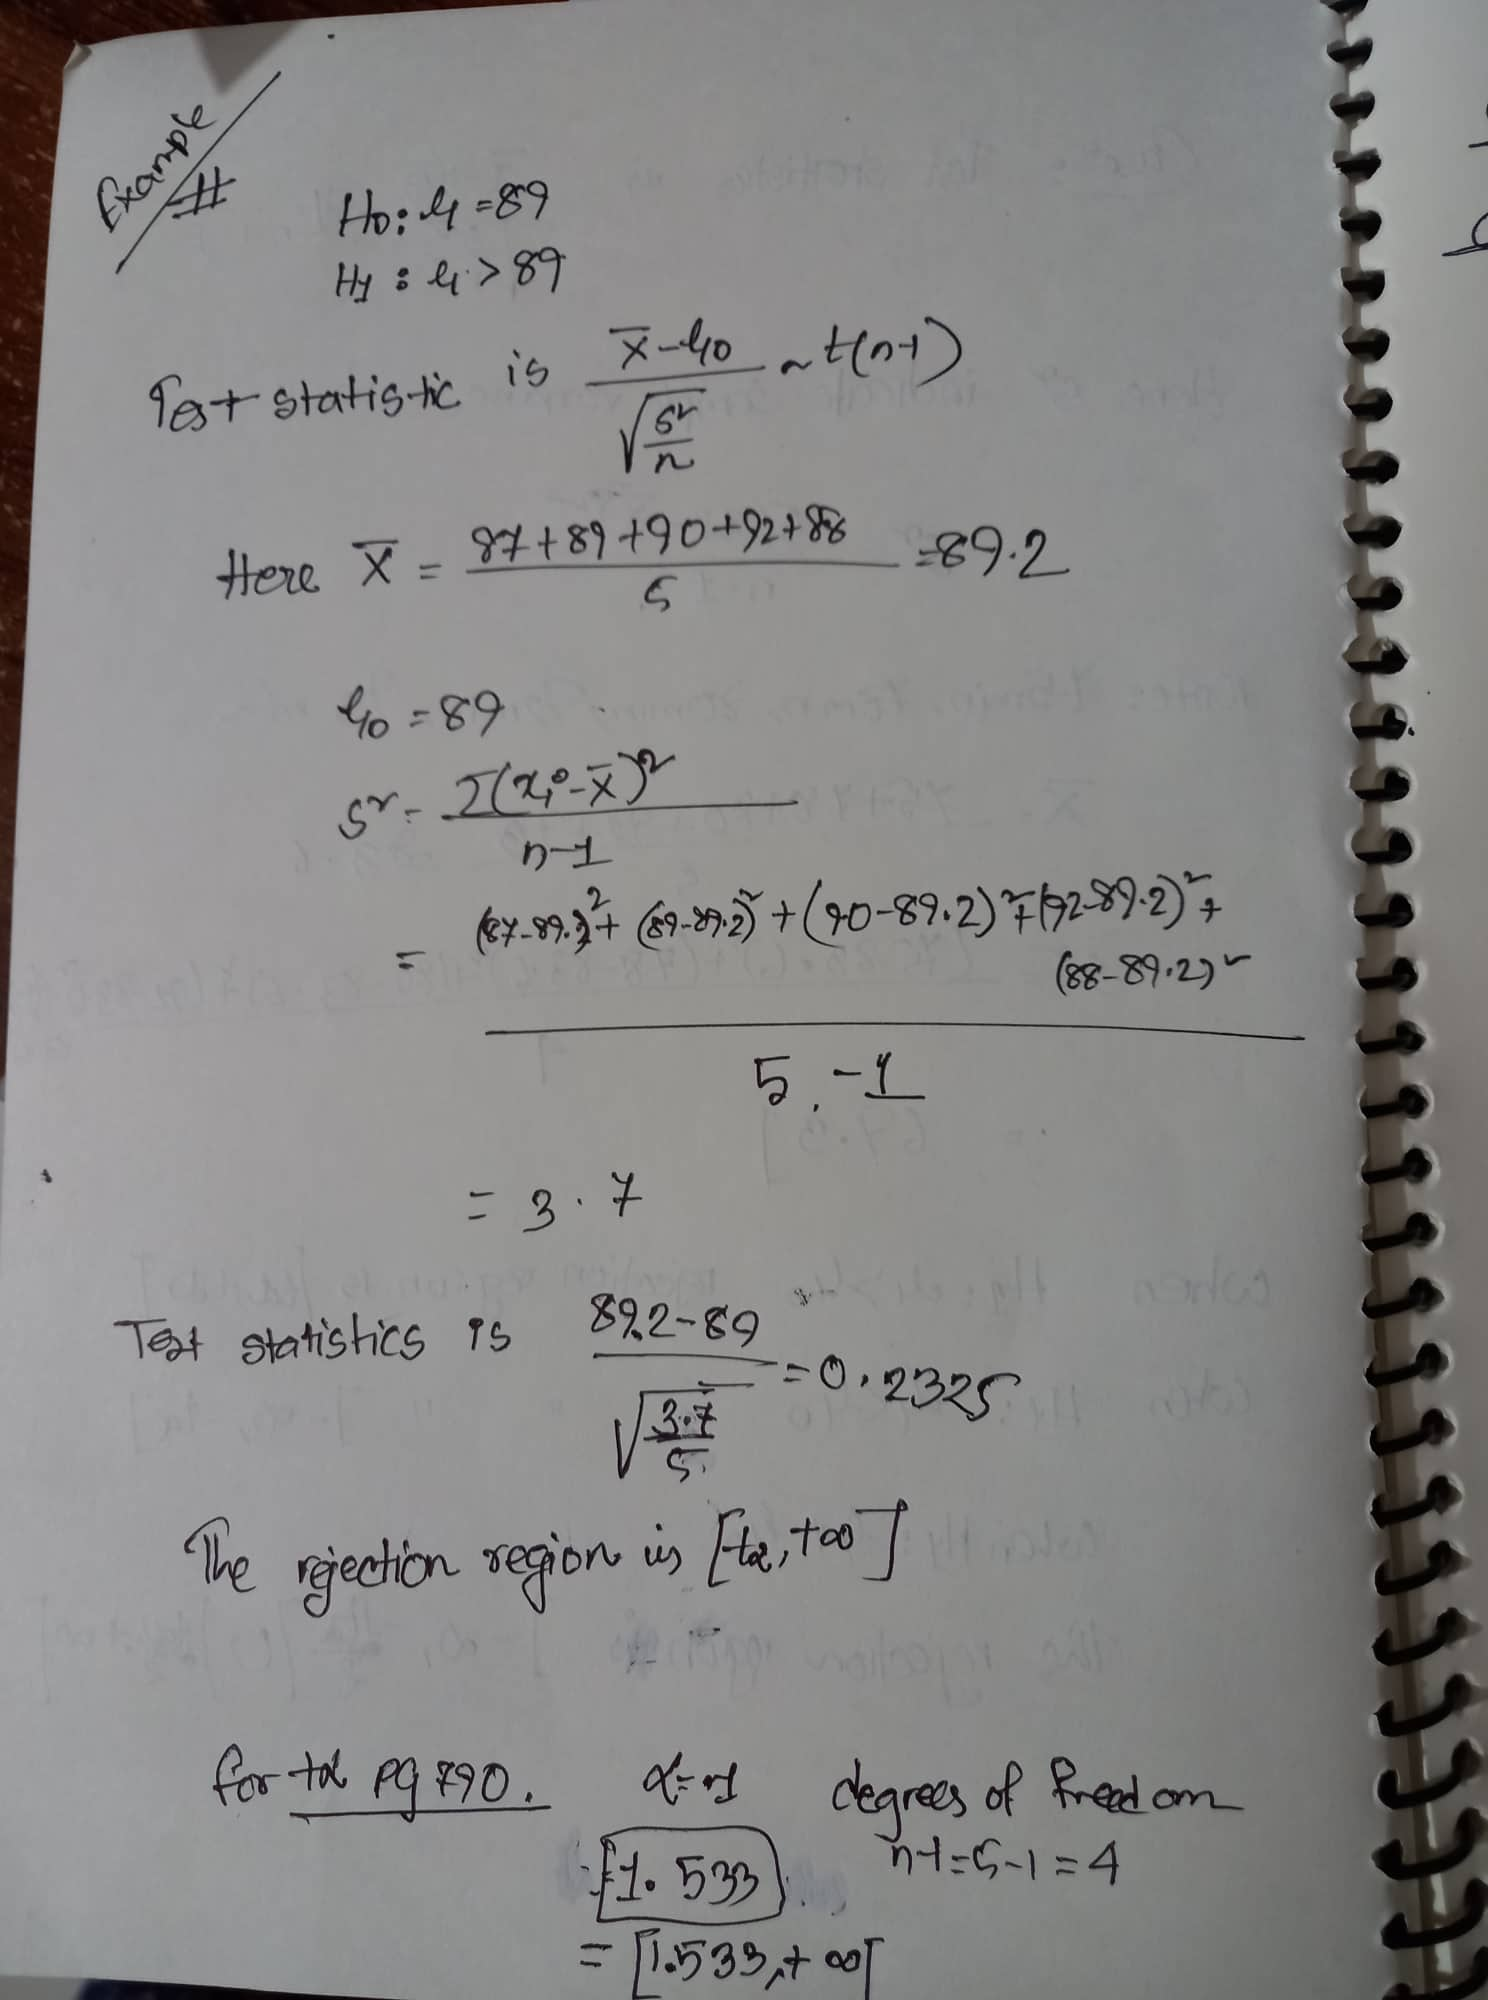 Example
#
H0: μ = 89
H1 : μ > 89
Test statistic is x̄ - μ0 / √(s² / n) ~ t(n-1)
Here x̄ = 87 + 89 + 90 + 92 + 88 / 5 = 89.2
μ0 = 89
s² = Σ(xi - x̄)² / n-1
= (87-89.2)² + (89-89.2)² + (90-89.2)² + (92-89.2)² +
(88-89.2)²
5 - 1
= 3.7
Test statistics is 89.2-89 / √(3.7 / 5) = 0.2325
The rejection region is [tα, +∞]
for tα pg 790. α = .1 degrees of freedom
n-1 = 5-1 = 4
= 1.533
= [1.533, + ∞[